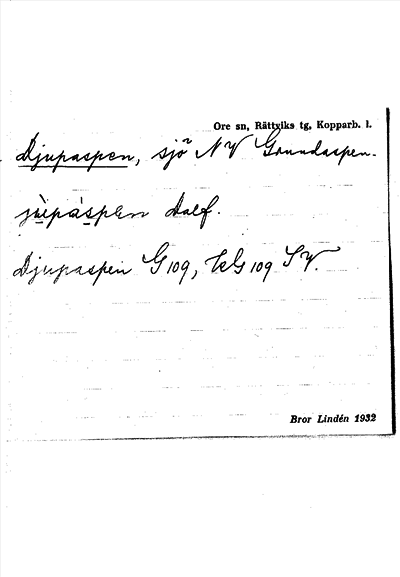 Ore sn, Rättviks tg, Kopparb. l.
Djupaspen, sjö NV Grundaspen.
Dalf.
Djupaspen G 109, kG 109 SV.
Bror Lindén 1932